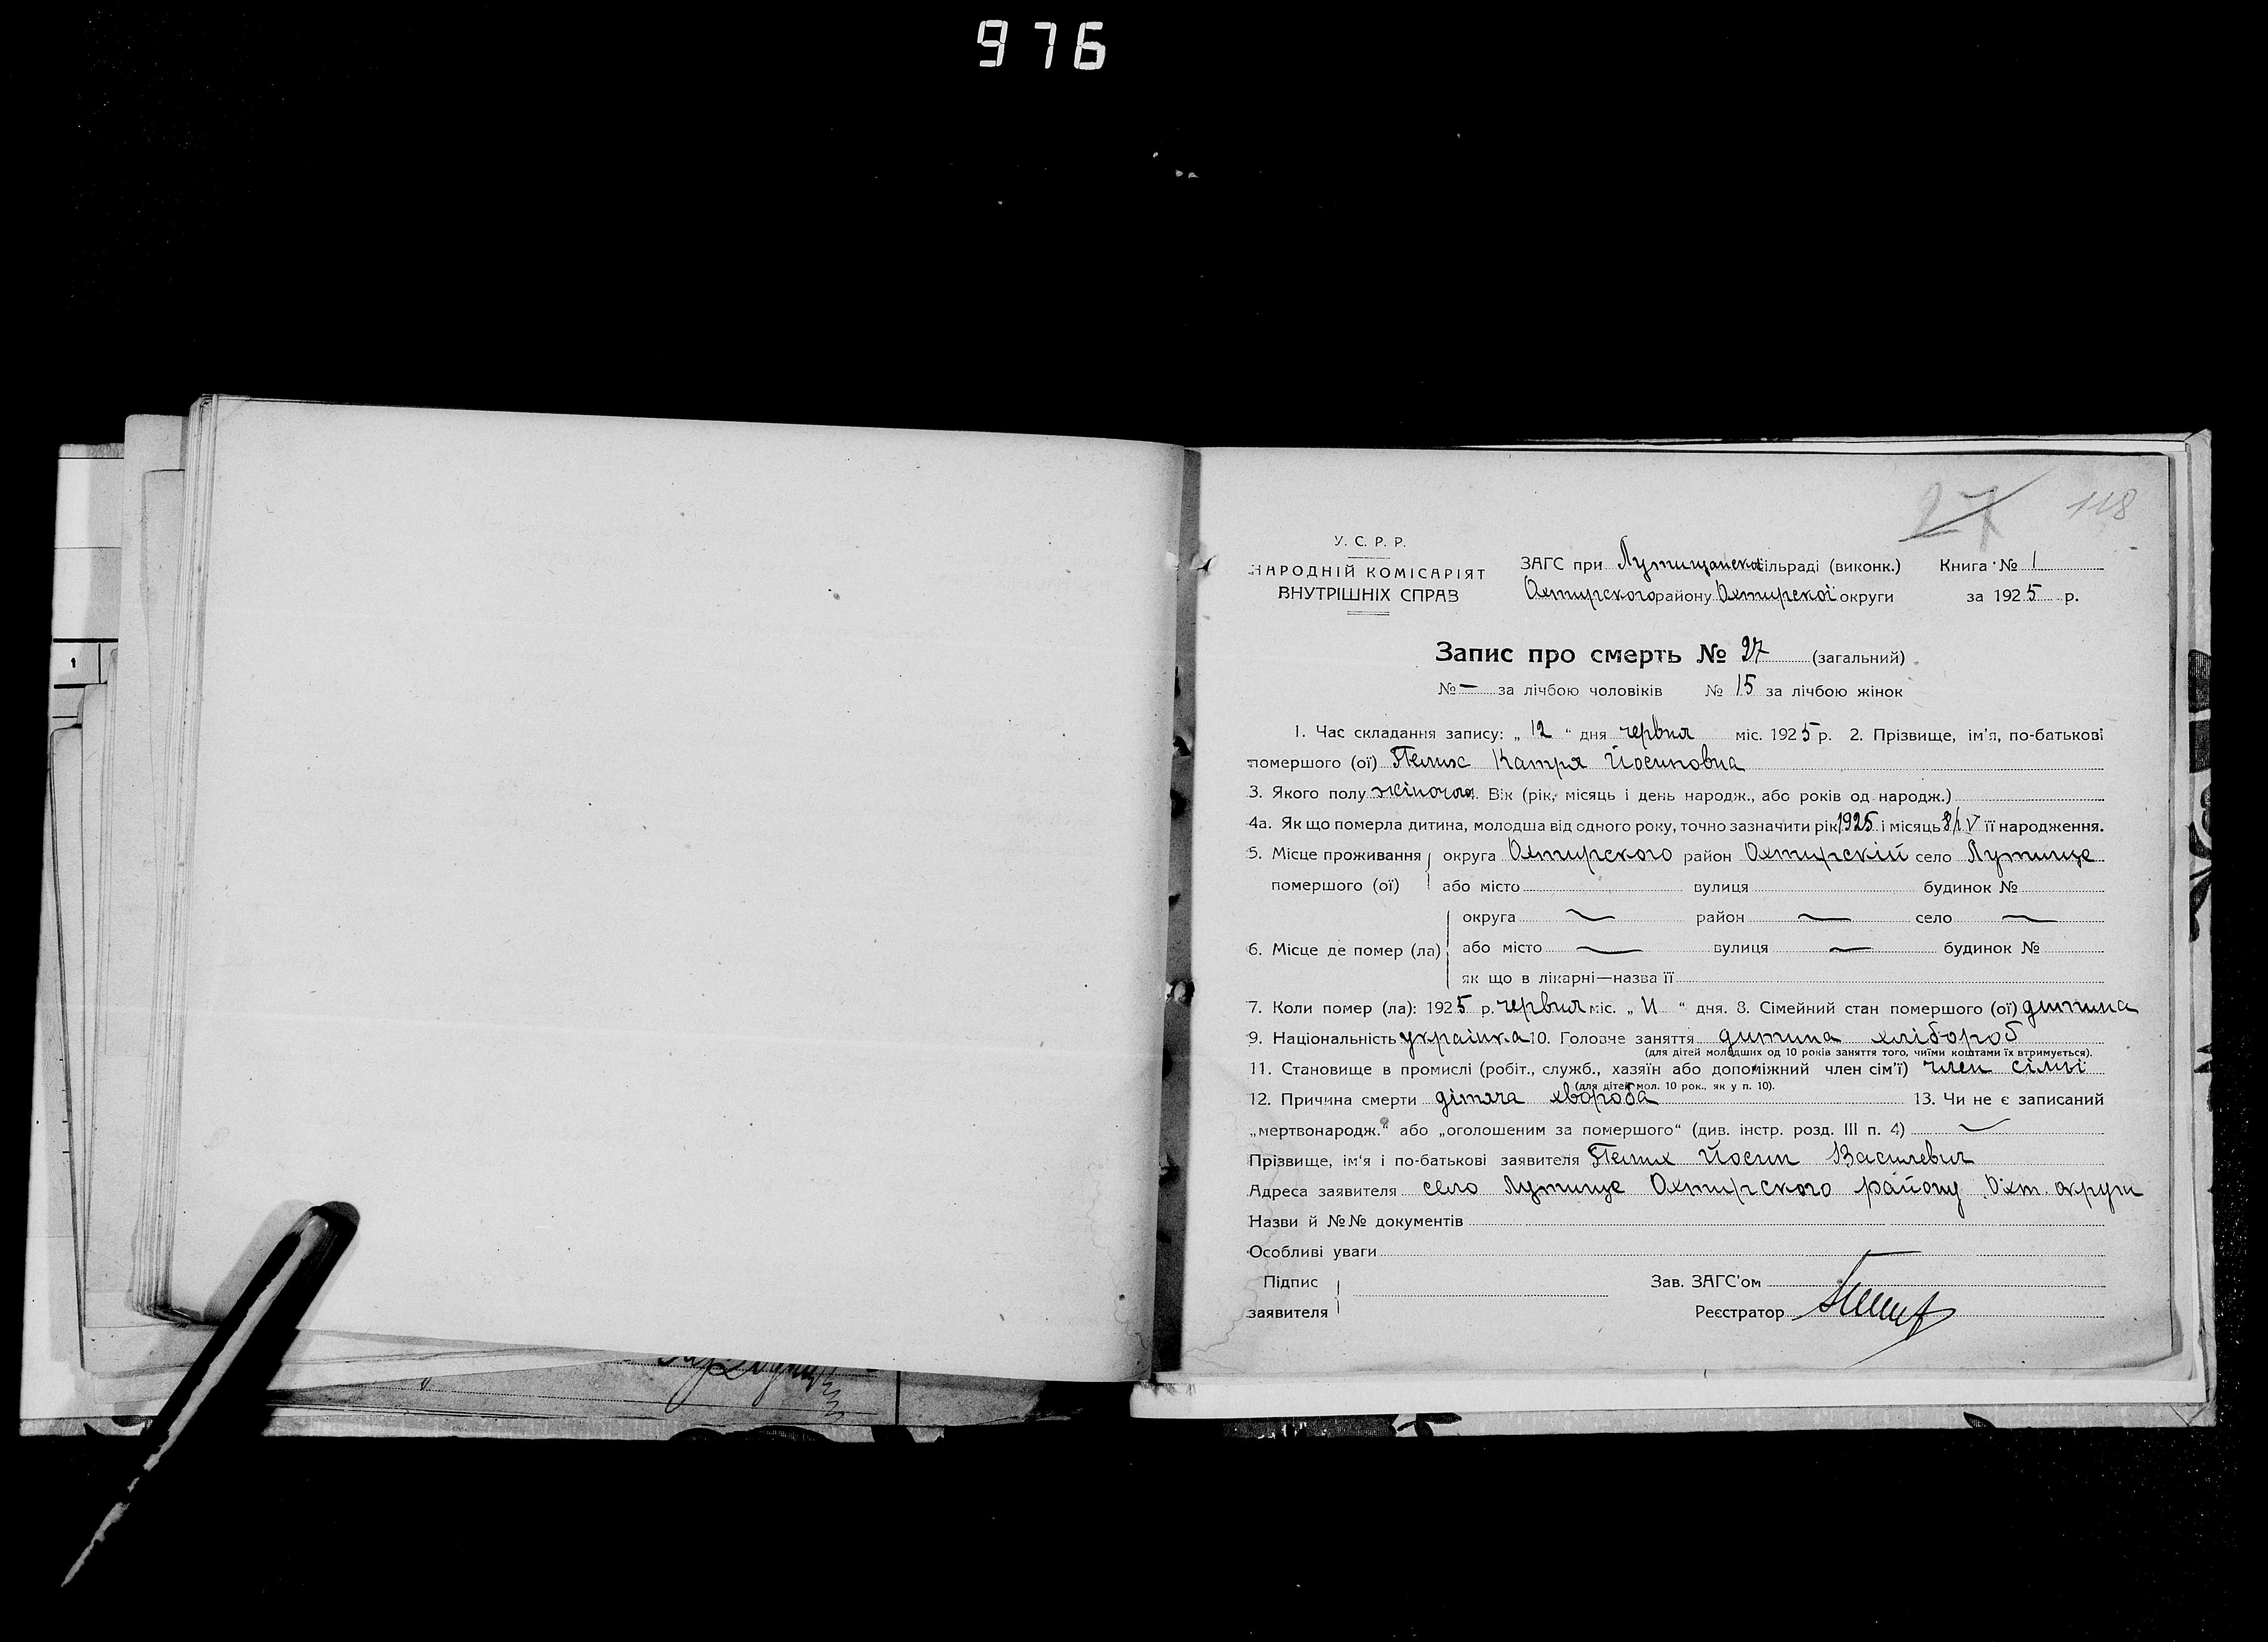 976
27 118
У. С. Р. Р.
НАРОДНІЙ КОМІСАРІЯТ
ВНУТРІШНІХ СПРАВ
ЗАГС при Лутищанскої сільраді (виконк.) Книга № 1
Охтирского району Охтирскої округи за 1925 р.
Запис про смерть № 27 (загальний)
№ — за лічбою чоловіків № 15 за лічбою жінок
1. Час складання запису: „ 12 “ дня червня міс. 1925 р. 2. Прізвище, ім'я, по-батькові
помершого (ої) Пелих Катря Йосиповна
3. Якого полу жіночого 4. Вік (рік, місяць і день народж., або років од народж.)
4а. Як що померла дитина, молодша від одного року, точно зазначити рік 1925 і місяць 8/V її народження.
5. Місце проживання округа Охтирского район Охтирскій село Лутище
помершого (ої) або місто вулиця будинок №
округа — район — село —
6. Місце де помер (ла) або місто — вулиця — будинок №
як що в лікарні—назва її
7. Коли помер (ла): 1925 р. червня міс. „ 11 “ дня. 8. Сімейний стан помершого (ої) дитина
9. Національність українка 10. Головне заняття дитина хлібороб
(для дітей молодших од 10 років заняття того, чиїми коштами їх втримується).
11. Становище в промислі (робіт., служб., хазяїн або допоміжний член сім'ї) член сімьі
(для дітей мол. 10 рок., як у п. 10).
12. Причина смерти дітяча хвороба 13. Чи не є записаний
„мертвонародж.“ або „оголошеним за помершого“ (див. інстр. розд. III п. 4) —
Прізвище, ім'я і по-батькові заявителя Пелих Йосип Василевич
Адреса заявителя село Лутище Охтирского району Охт. округи
Назви й №№ документів
Особливі уваги
Підпис Зав. ЗАГС'ом
заявителя Реєстратор